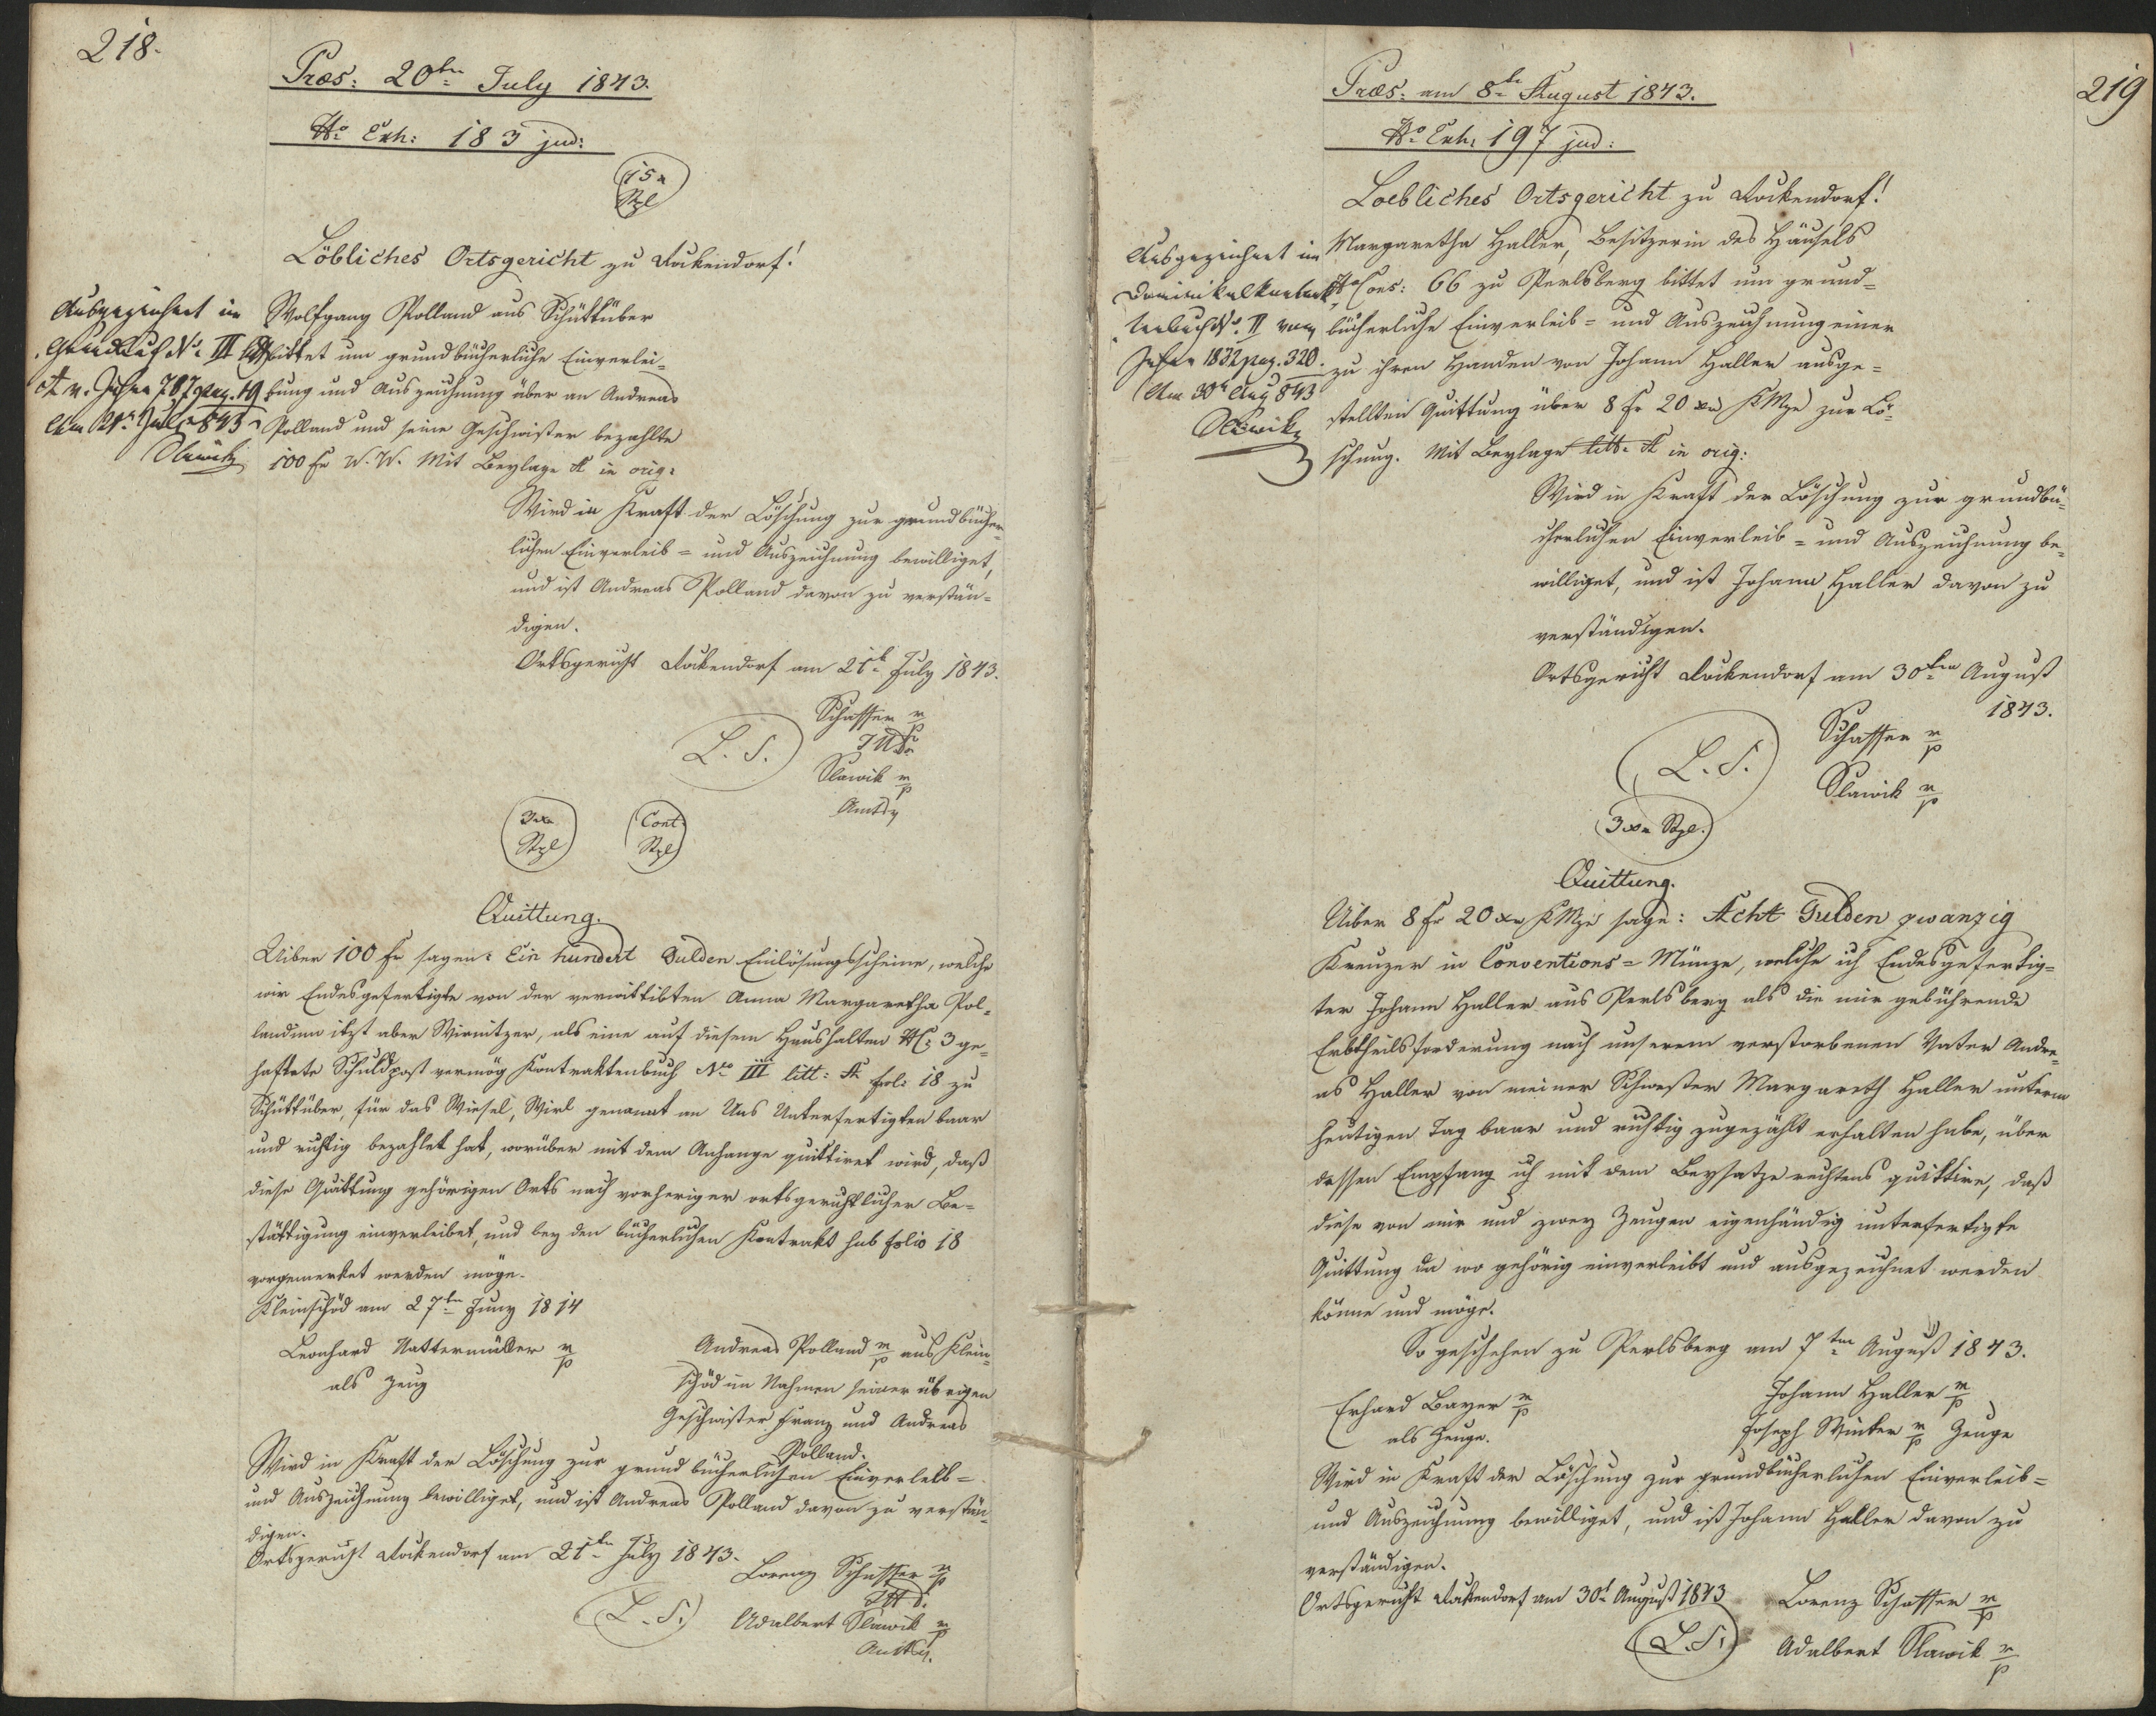 218.
Præs: 20ten July 1843.
No Exh: 183 jud:
15 x
Stpl
Löbliches Ortsgericht zu Dockendorf!
Ausgezeichnet im
Grundbuch No. III litt
A v. Jahre 787 pag. 19
Am 21t July 843
Slawik
Wolfgang Polland aus Schüttüber
bittet um grundbücherliche Einverlei-
bung und Auszeichnung über an Andreas
Polland und seine Geschwister bezahlte
100 fr W. W. Mit Beylage A in orig:
Wird in Kraft der Löschung zur grundbücher-
lichen Einverleib- und Auszeichnung bewilliget,
und ist Andreas Polland davon zu verstän-
digen.
Ortsgericht Dockendorf am 21t July 1843.
Schaffer m/p
L. S.
Slawik m/p
3 xr
Stpl
Cont:
Stpl
Quittung.
Uiber 100 fr sagen: Ein hundert Gulden Einlösungsscheine, welche
wir Endesgefertigte von der verwittibten Anna Margaretha Pol-
landinn itzt aber Wirnitzer, als eine auf diesem Haushalten NC: 3 ge-
haftete Schuldpost vermög Kontraktenbuch Nro III litt: A fol: 18 zu
Schüttüber, für das Wiesel, Wirl genannt an Uns Unterfertigten baar
und richtig bezahlet hat, worüber mit dem Anhange quittiret wird, daß
diese Quittung gehörigen Orts nach vorheriger ortsgerichtlicher Be-
stättigung einverleibet, und bey den bücherlichen Kontrakt sub folio 18
vorgemerket werden möge.
Kleinschöd am 27ten Juny 1814
Leonhard Nattermüller m/p
als Zeug
Andreas Polland m/p aus Klein-
schöd im Nahmen seiner übrigen
Geschwister Franz und Andreas
Polland.
Wird in Kraft der Löschung zur grundbücherlichen Einverleib-
und Auszeichnung bewilliget, und ist Andreas Polland davon zu verstän-
digen.
Ortsgericht Dockendorf am 21ten July 1843.
Lorenz Schaffer m/p
L. S.
Adalbert Slawik m/p
219
Præs: am 8te August 1843.
No Exh: 197 jud:
Loebliches Ortsgericht zu Dockendorf!
Ausgezeichnet im
Dominikalkontrak-
tenbuch No. II vom
Jahre 1832 pag. 320.
Am 30t Aug 843
Slawik
Margaretha Haller, Besitzerin des Häusels
No Cons: 66 zu Perlsberg bittet um grund-
bücherliche Einverleib- und Auszeichnung einer
zu ihren Handen von Johann Haller ausge-
stellten Quittung über 8 fr 20 xr KMze zur Lö-
schung. Mit Beylage litt. A in orig:
Wird in Kraft der Löschung zur grundbü-
cherlichen Einverleib- und Auszeichnung be-
williget, und ist Johann Haller davon zu
verständigen.
Ortsgericht Dockendorf am 30ten August
1843.
Schaffer m/p
L. S.
Slawik m/p
3 xr Stpl.
Quittung.
Uiber 8 fr 20 xr KMze sage: Acht Gulden zwanzig
Kreuzer in Conventions-Münze, welche ich Endesgefertig-
ter Johann Haller aus Perlsberg als die mir gebührende
Erbtheilsforderung nach unserem verstorbenen Vater Andre-
as Haller von meiner Schwester Margareth Haller unterm
heutigen Tag baar und richtig zugezählt erhalten habe, über
dessen Empfang ich mit dem Beysatze rechtens quittire, daß
diese von mir und zwey Zeugen eigenhändig unterfertigte
Quittung da wo gehörig einverleibt und ausgezeichnet werden
könne und möge.
So geschehen zu Perlsberg am 7ten August 1843.
Erhard Bayer m/p
als Zeuge.
Johann Haller m/p
Joseph Winter m/p Zeuge
Wird in Kraft der Löschung zur grundbücherlichen Einverleib-
und Auszeichnung bewilliget, und ist Johann Haller davon zu
verständigen.
Ortsgericht Dockendorf am 30t August 1843
Lorenz Schaffer m/p
L. S.
Adalbert Slawik m/p